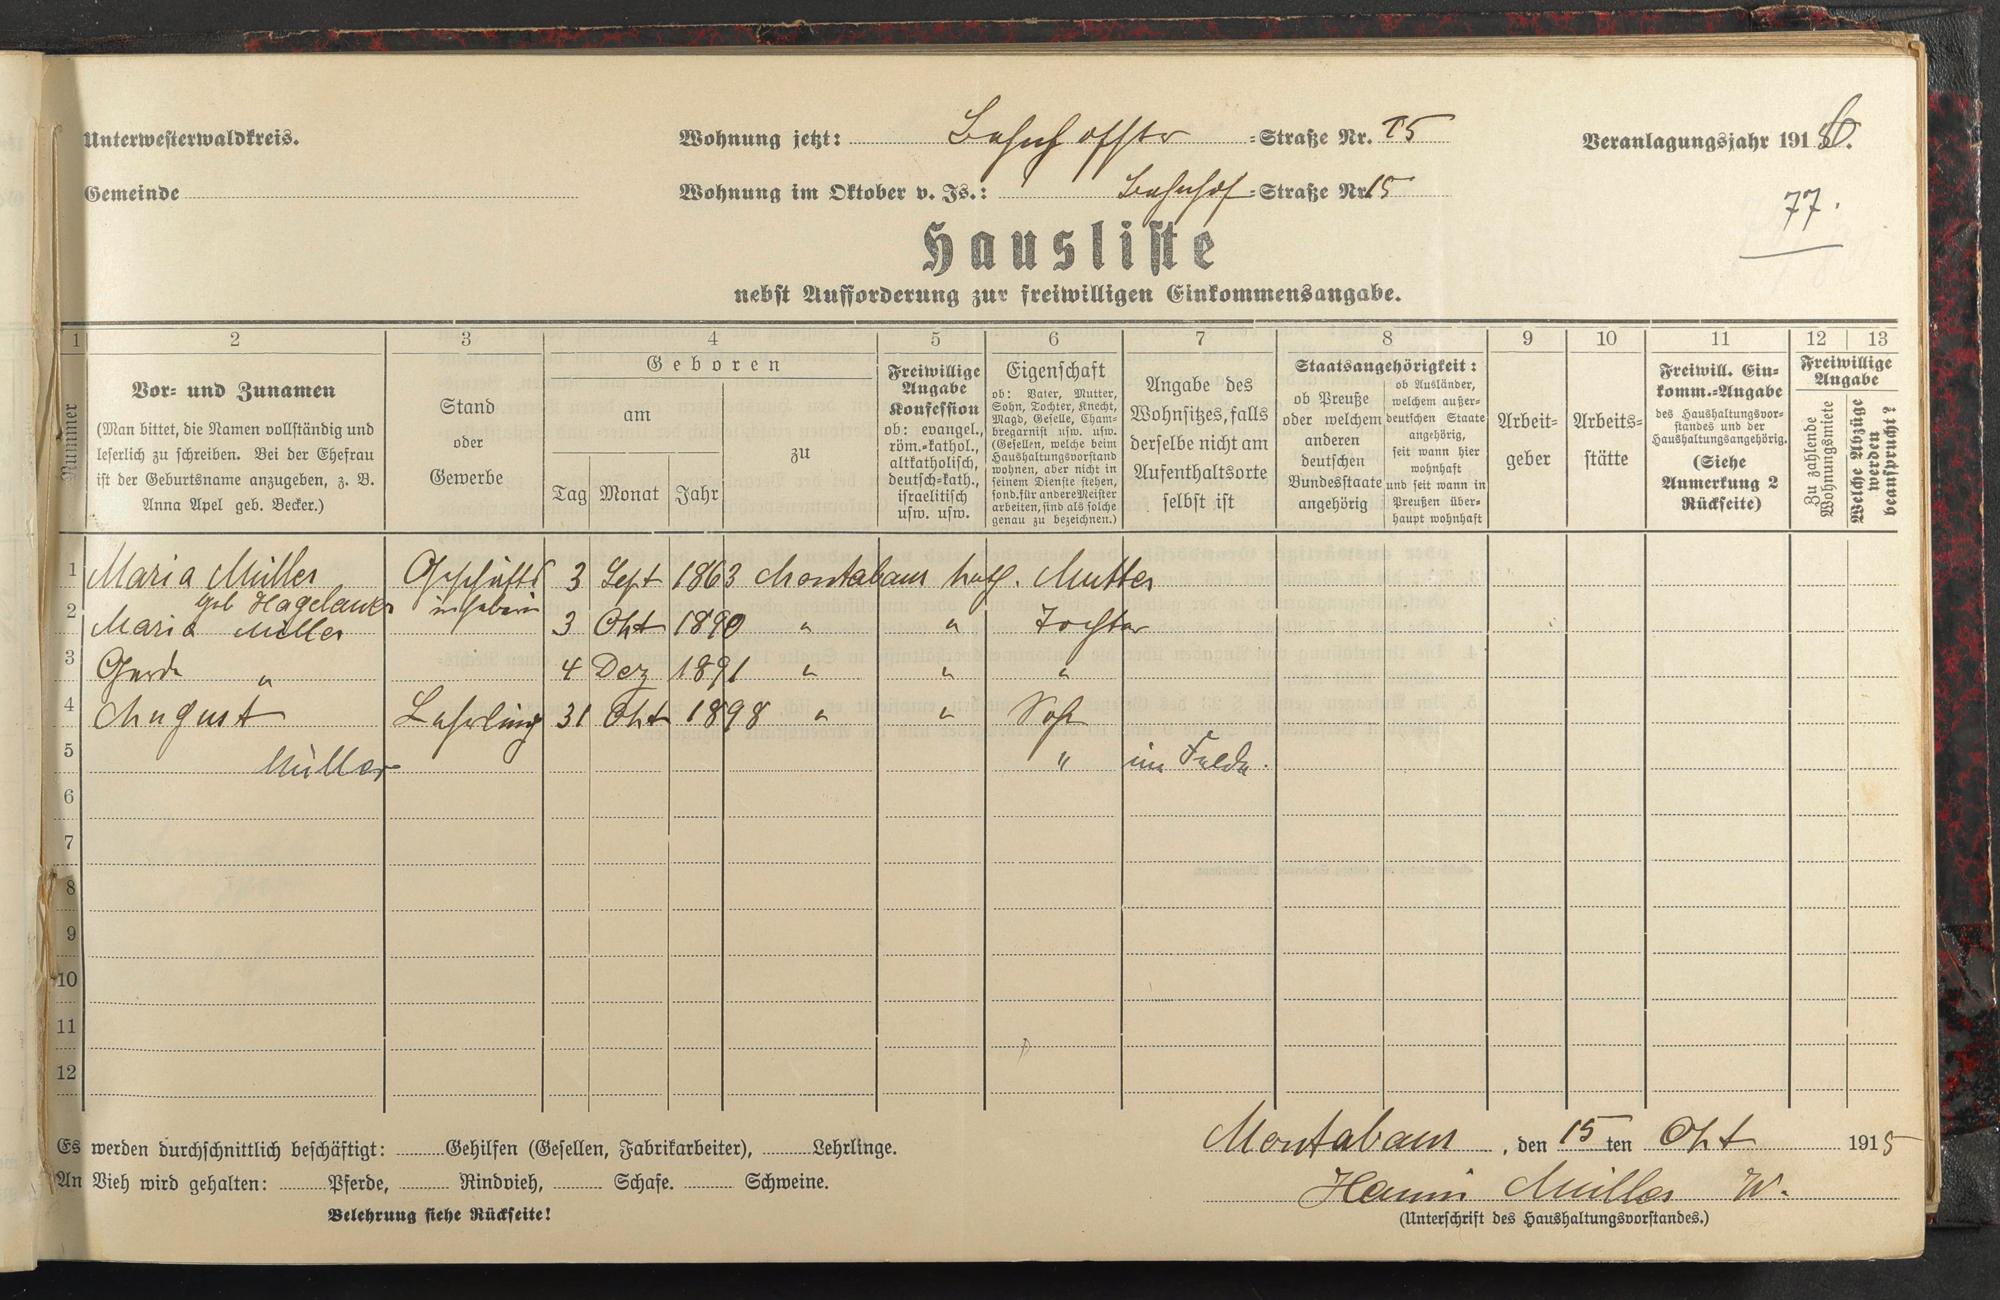 Unterwesterwaldkreis.
Wohnung jetzt: Bahnhofstr =Straße Nr. 15
Veranlagungsjahr 191
Gemeinde
Wohnung im Oktober v. Js.: Bahnhof =Straße Nr. 15
77.
Hausliste
nebst Aufforderung zur freiwilligen Einkommensangabe.
1 2 3 4 5 6 7 8 9 10 11 12 13
Nummer
Vor- und Zunamen
(Man bittet, die Namen vollständig und
leserlich zu schreiben. Bei der Ehefrau
ist der Geburtsname anzugeben, z. B.
Anna Apel geb. Becker.)
Stand
oder
Gewerbe
Geboren
am
Tag Monat Jahr
zu
Freiwillige
Angabe
Konfession
ob: evangel.,
röm.-kathol.,
altkatholisch,
deutsch-kath.,
israelitisch
usw. usw.
Eigenschaft
ob: Vater, Mutter,
Sohn, Tochter, Knecht,
Magd, Geselle, Cham-
bregarnist usw. usw.
(Gesellen, welche beim
Haushaltungsvorstand
wohnen, aber nicht in
seinem Dienste stehen,
sond. für andere Meister
arbeiten, sind als solche
genau zu bezeichnen.)
Angabe des
Wohnsitzes, falls
derselbe nicht am
Aufenthaltsorte
selbst ist
Staatsangehörigkeit:
ob Preuße
oder welchem
anderen
deutschen
Bundesstaate
angehörig
ob Ausländer,
welchem außer-
deutschen Staate
angehörig,
seit wann hier
wohnhaft
und seit wann in
Preußen über-
haupt wohnhaft
Arbeit-
geber
Arbeits-
stätte
Freiwill. Ein-
komm.-Angabe
des Haushaltungsvor-
standes und der
Haushaltungsangehörig.
(Siehe
Anmerkung 2
Rückseite)
Freiwillige
Angabe
Zu zahlende
Wohnungsmiete
Welche Abzüge
werden
beansprucht?
1 Maria Müller Geschäfts 3 Sept 1863 Montabaur kath. Mutter
geb Hagelauer inhaberin
2 Maria Müller 3 Okt 1890 " " Tochter
3 Gerda " 4 Dez 1891 " " "
4 August Lehrling 31 Okt 1898 " " Sohn
5 Müller " im Felde.
6
7
8
9
10
11
12
Es werden durchschnittlich beschäftigt: Gehilfen (Gesellen, Fabrikarbeiter), Lehrlinge.
Montabaur, den 15 ten Okt 1915
An Vieh wird gehalten: Pferde, Rindvieh, Schafe. Schweine.
Müller W.
Belehrung siehe Rückseite!
(Unterschrift des Haushaltungsvorstandes.)